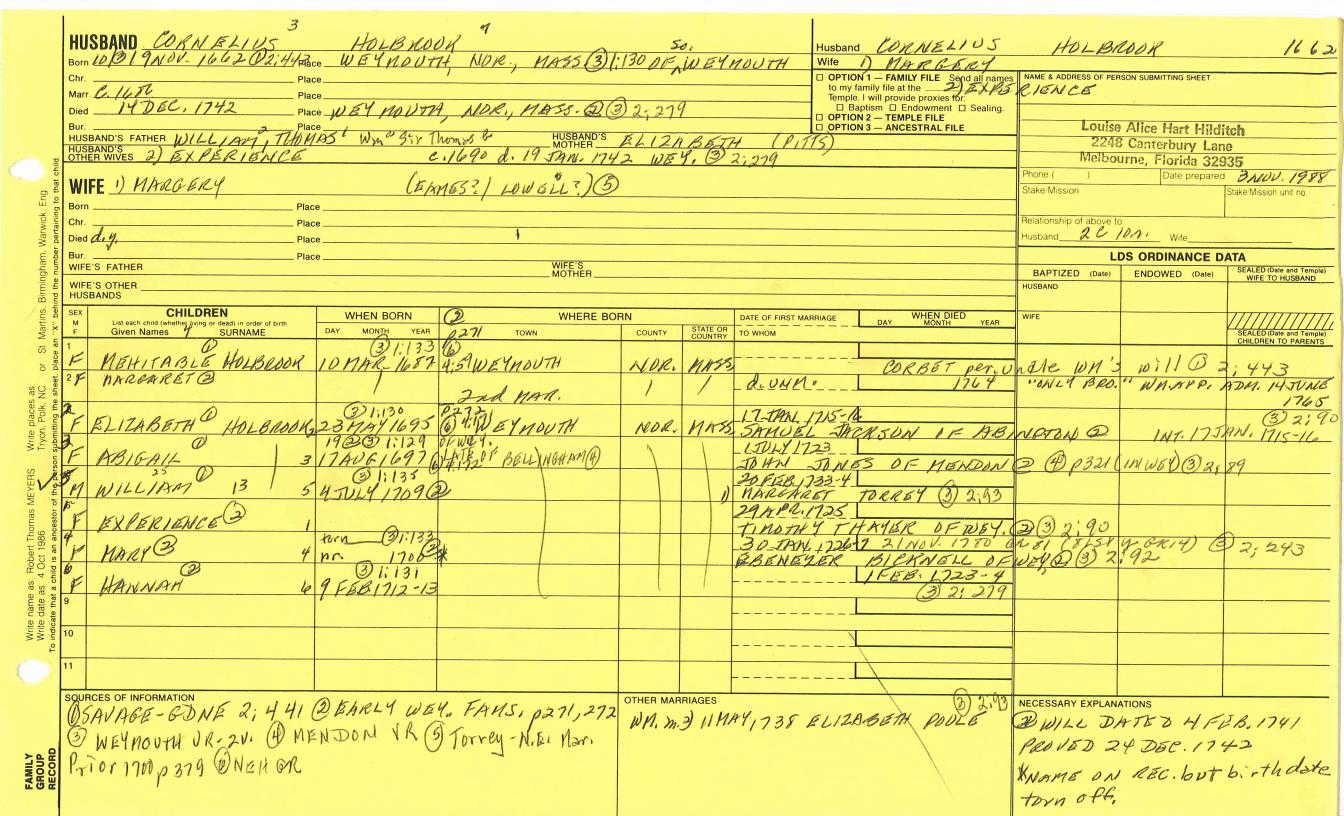 3 4
HUSBAND CORNELIUS HOLBROOK So.
Born 10 ③ 19 NOV. 1662 ① 2:442 Place WEYMOUTH, NOR., MASS ③ 1:130 OF, WEYMOUTH
Chr. Place
Marr. C. 1686 Place
Died 14 DEC. 1742 Place WEYMOUTH, NOR., MASS. ② ③ 2:279
Bur. Place
HUSBAND'S FATHER WILLIAM², THOMAS¹ Wm Sir Thomas HUSBAND'S MOTHER ELIZABETH (PITTS)
HUSBAND'S OTHER WIVES 2) EXPERIENCE c.1690 d. 19 JAN. 1742 WEY. ③ 2:279
WIFE 1) MARGERY (EAMES?/ LOWELL?) ⑤
Born Place
Chr. Place
Died d.y. Place
Bur. Place
WIFE'S FATHER WIFE'S MOTHER
WIFE'S OTHER HUSBANDS
Husband CORNELIUS HOLBROOK 1662
Wife 1) MARGERY
2) EXPERIENCE
☐ OPTION 1 — FAMILY FILE Send all names
to my family file at the
Temple. I will provide proxies for:
☐ Baptism ☐ Endowment ☐ Sealing.
☐ OPTION 2 — TEMPLE FILE
☐ OPTION 3 — ANCESTRAL FILE
NAME & ADDRESS OF PERSON SUBMITTING SHEET
Louise Alice Hart Hilditch
2248 Canterbury Lane
Melbourne, Florida 32935
Phone ( ) Date prepared 3 NOV. 1988
Stake Mission Stake Mission unit no.
Relationship of above to
Husband 2C 10r. Wife
LDS ORDINANCE DATA
BAPTIZED (Date) ENDOWED (Date) SEALED (Date and Temple) WIFE TO HUSBAND
HUSBAND
WIFE
SEALED (Date and Temple) CHILDREN TO PARENTS
SEX M F CHILDREN WHEN BORN ② WHERE BORN DATE OF FIRST MARRIAGE WHEN DIED
List each child (whether living or dead) in order of birth
Given Names 4 SURNAME DAY MONTH YEAR p271 TOWN COUNTY STATE OR COUNTRY TO WHOM DAY MONTH YEAR
1 ① ③ 1:133 ⑥
F MEHITABLE HOLBROOK 10 MAR. 1687 4:5 WEYMOUTH NOR. MASS. CORBET per uncle WM's will ① 2:443
2 F MARGARET ② d. UNM. 1764 "ONLY BRO." WM. APP. ADM. 14 JUNE 1765
2nd MAR.
2 ① ③ 1:130 p272 17 JAN. 1715-16 ③ 2:90
F ELIZABETH HOLBROOK 2 23 MAY 1695 WEYMOUTH NOR. MASS. SAMUEL JACKSON OF ABINGTON ② INT. 17 JAN. 1715-16
3 ① 19 ② ③ 1:129 OF WEY. 1 JULY 1723
F ABIGAIL 3 17 AUG 1697 LATE OF BELLINGHAM ④ JOHN JONES OF MENDON ② ④ p321 (IN WEY) ③ 2:89
5 ① ③ 1:135 20 FEB. 1733-4
M WILLIAM 13 5 4 JULY 1709 ② 1) MARGARET TORREY ③ 2:93
29 APR. 1725
F EXPERIENCE ② 1 TIMOTHY THAYER OF WEY. ② ③ 2:90
4 torn ③ 1:133 30 JAN. 1726-7 21 NOV. 1780 ③ 2:243
F MARY ② 4 nr. 1700 ② * EBENEZER BICKNELL OF WEY ② ③ 2:92
6 ② ③ 1:131 1 FEB. 1723-4
F HANNAH 6 9 FEB 1712-13 ③ 2:279
9
10
11
SOURCES OF INFORMATION
① SAVAGE-GDNE 2:441 ② EARLY WEY. FAMS. p271,272
③ WEYMOUTH VR-2V. ④ MENDON VR ⑤ Torrey-N.E. Mar.
Prior 1700 p379 ⑥ NEHGR
OTHER MARRIAGES ③ 2:93
WM. m. 2) 11 MAY, 1738 ELIZABETH POOLE
NECESSARY EXPLANATIONS
② WILL DATED 4 FEB. 1741
PROVED 24 DEC. 1742
*NAME ON REC. but birthdate
torn off.
Write name as: Robert Thomas MEYERS Write places as: Tryon, Polk, NC or St Martins, Birmingham, Warwick, Eng
Write date as: 4 Oct 1986
To indicate that a child is an ancestor of the person submitting the sheet, place an "X" behind the number pertaining to that child
FAMILY GROUP RECORD